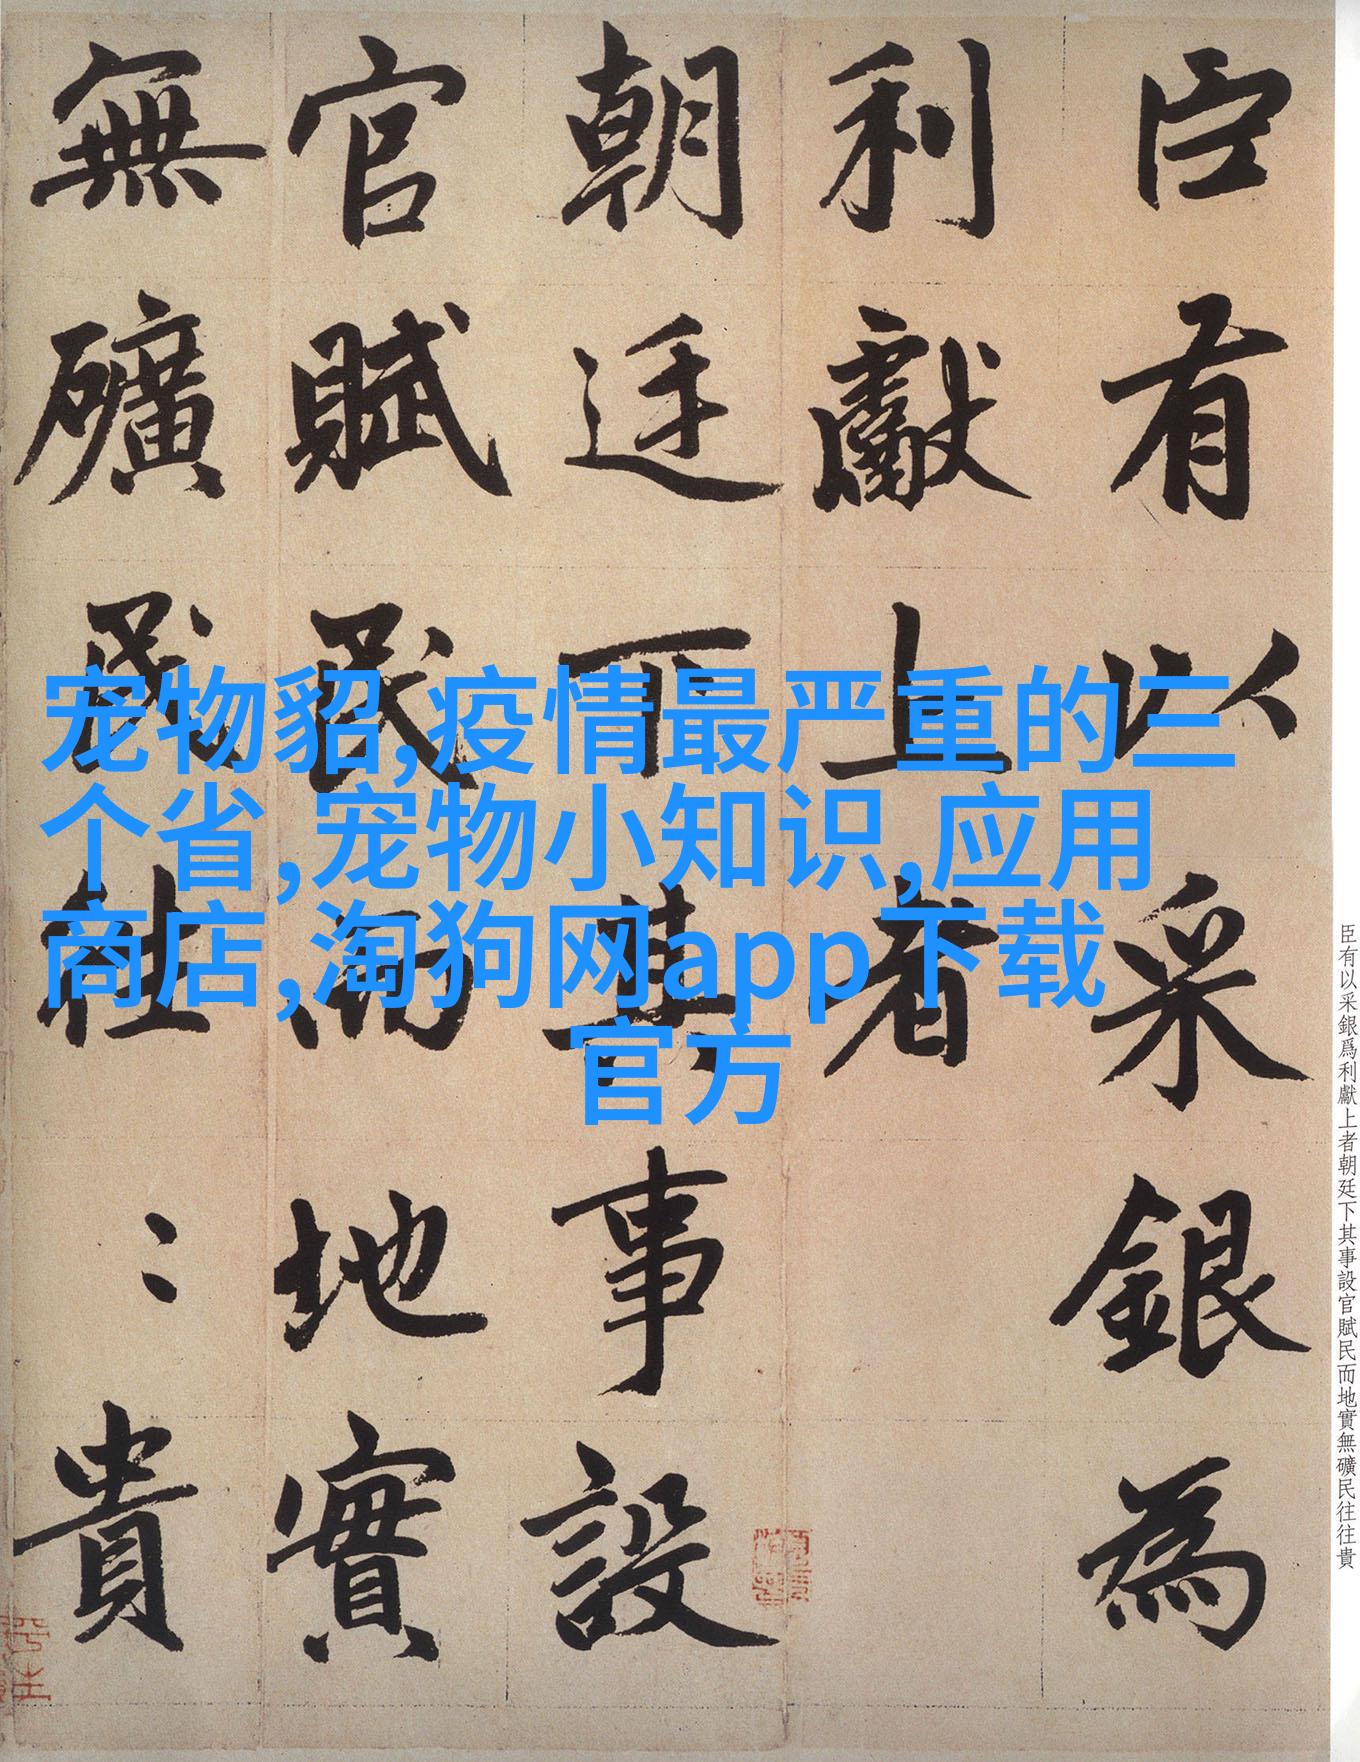 臣有以采銀為
利獻上者
朝廷下其事設
官賦民而地實
無礦民往〻貴
宠物貂,疫情最严重的三
个省,宠物小知识,应用
商店,淘狗网app下载
官方
臣有以采銀爲利獻上者朝廷下其事設官賦民而地實無礦民往往貴